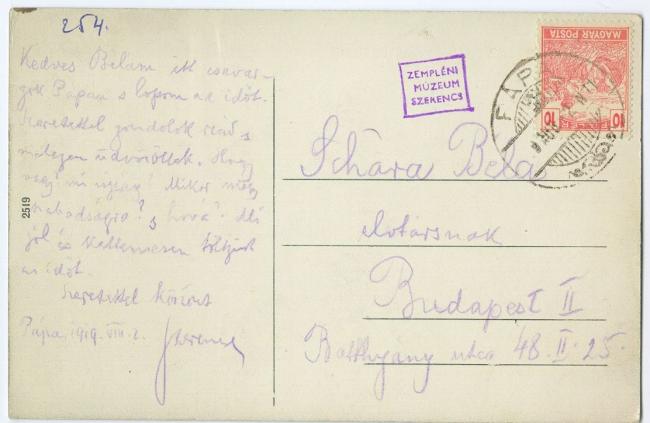 254.
Kedves Bélám itt csavar-
gok Pápán s lopom az időt.
Szeretettel gondolok reád s
melegen üdvözöllek. Hogy
vagy, mi újság? Mikor mégy
szabadságra? s hová? Mi
jól és kellemesen töltjük
az időt.
Szeretettel köszönt
Pápa, 1919. VIII. 2.
2519
ZEMPLÉNI
MÚZEUM
SZERENCS
MAGYAR POSTA
10 10
PÁPA
Schára Béla
elvtársnak
Budapest II
Batthyány utca 48. II. 25.